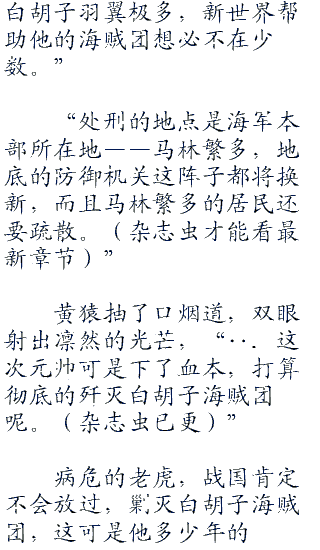 白胡子羽翼极多，新世界帮
助他的海贼团想必不在少
数。”
“处刑的地点是海军本
部所在地——马林繁多，地
底的防御机关这阵子都将换
新，而且马林繁多的居民还
要疏散。（杂志虫才能看最
新章节）”
黄猿抽了口烟道，双眼
射出凛然的光芒，“··．这
次元帅可是下了血本，打算
彻底的歼灭白胡子海贼团
呢。（杂志虫已更）”
病危的老虎，战国肯定
不会放过，剿灭白胡子海贼
团，这可是他多少年的